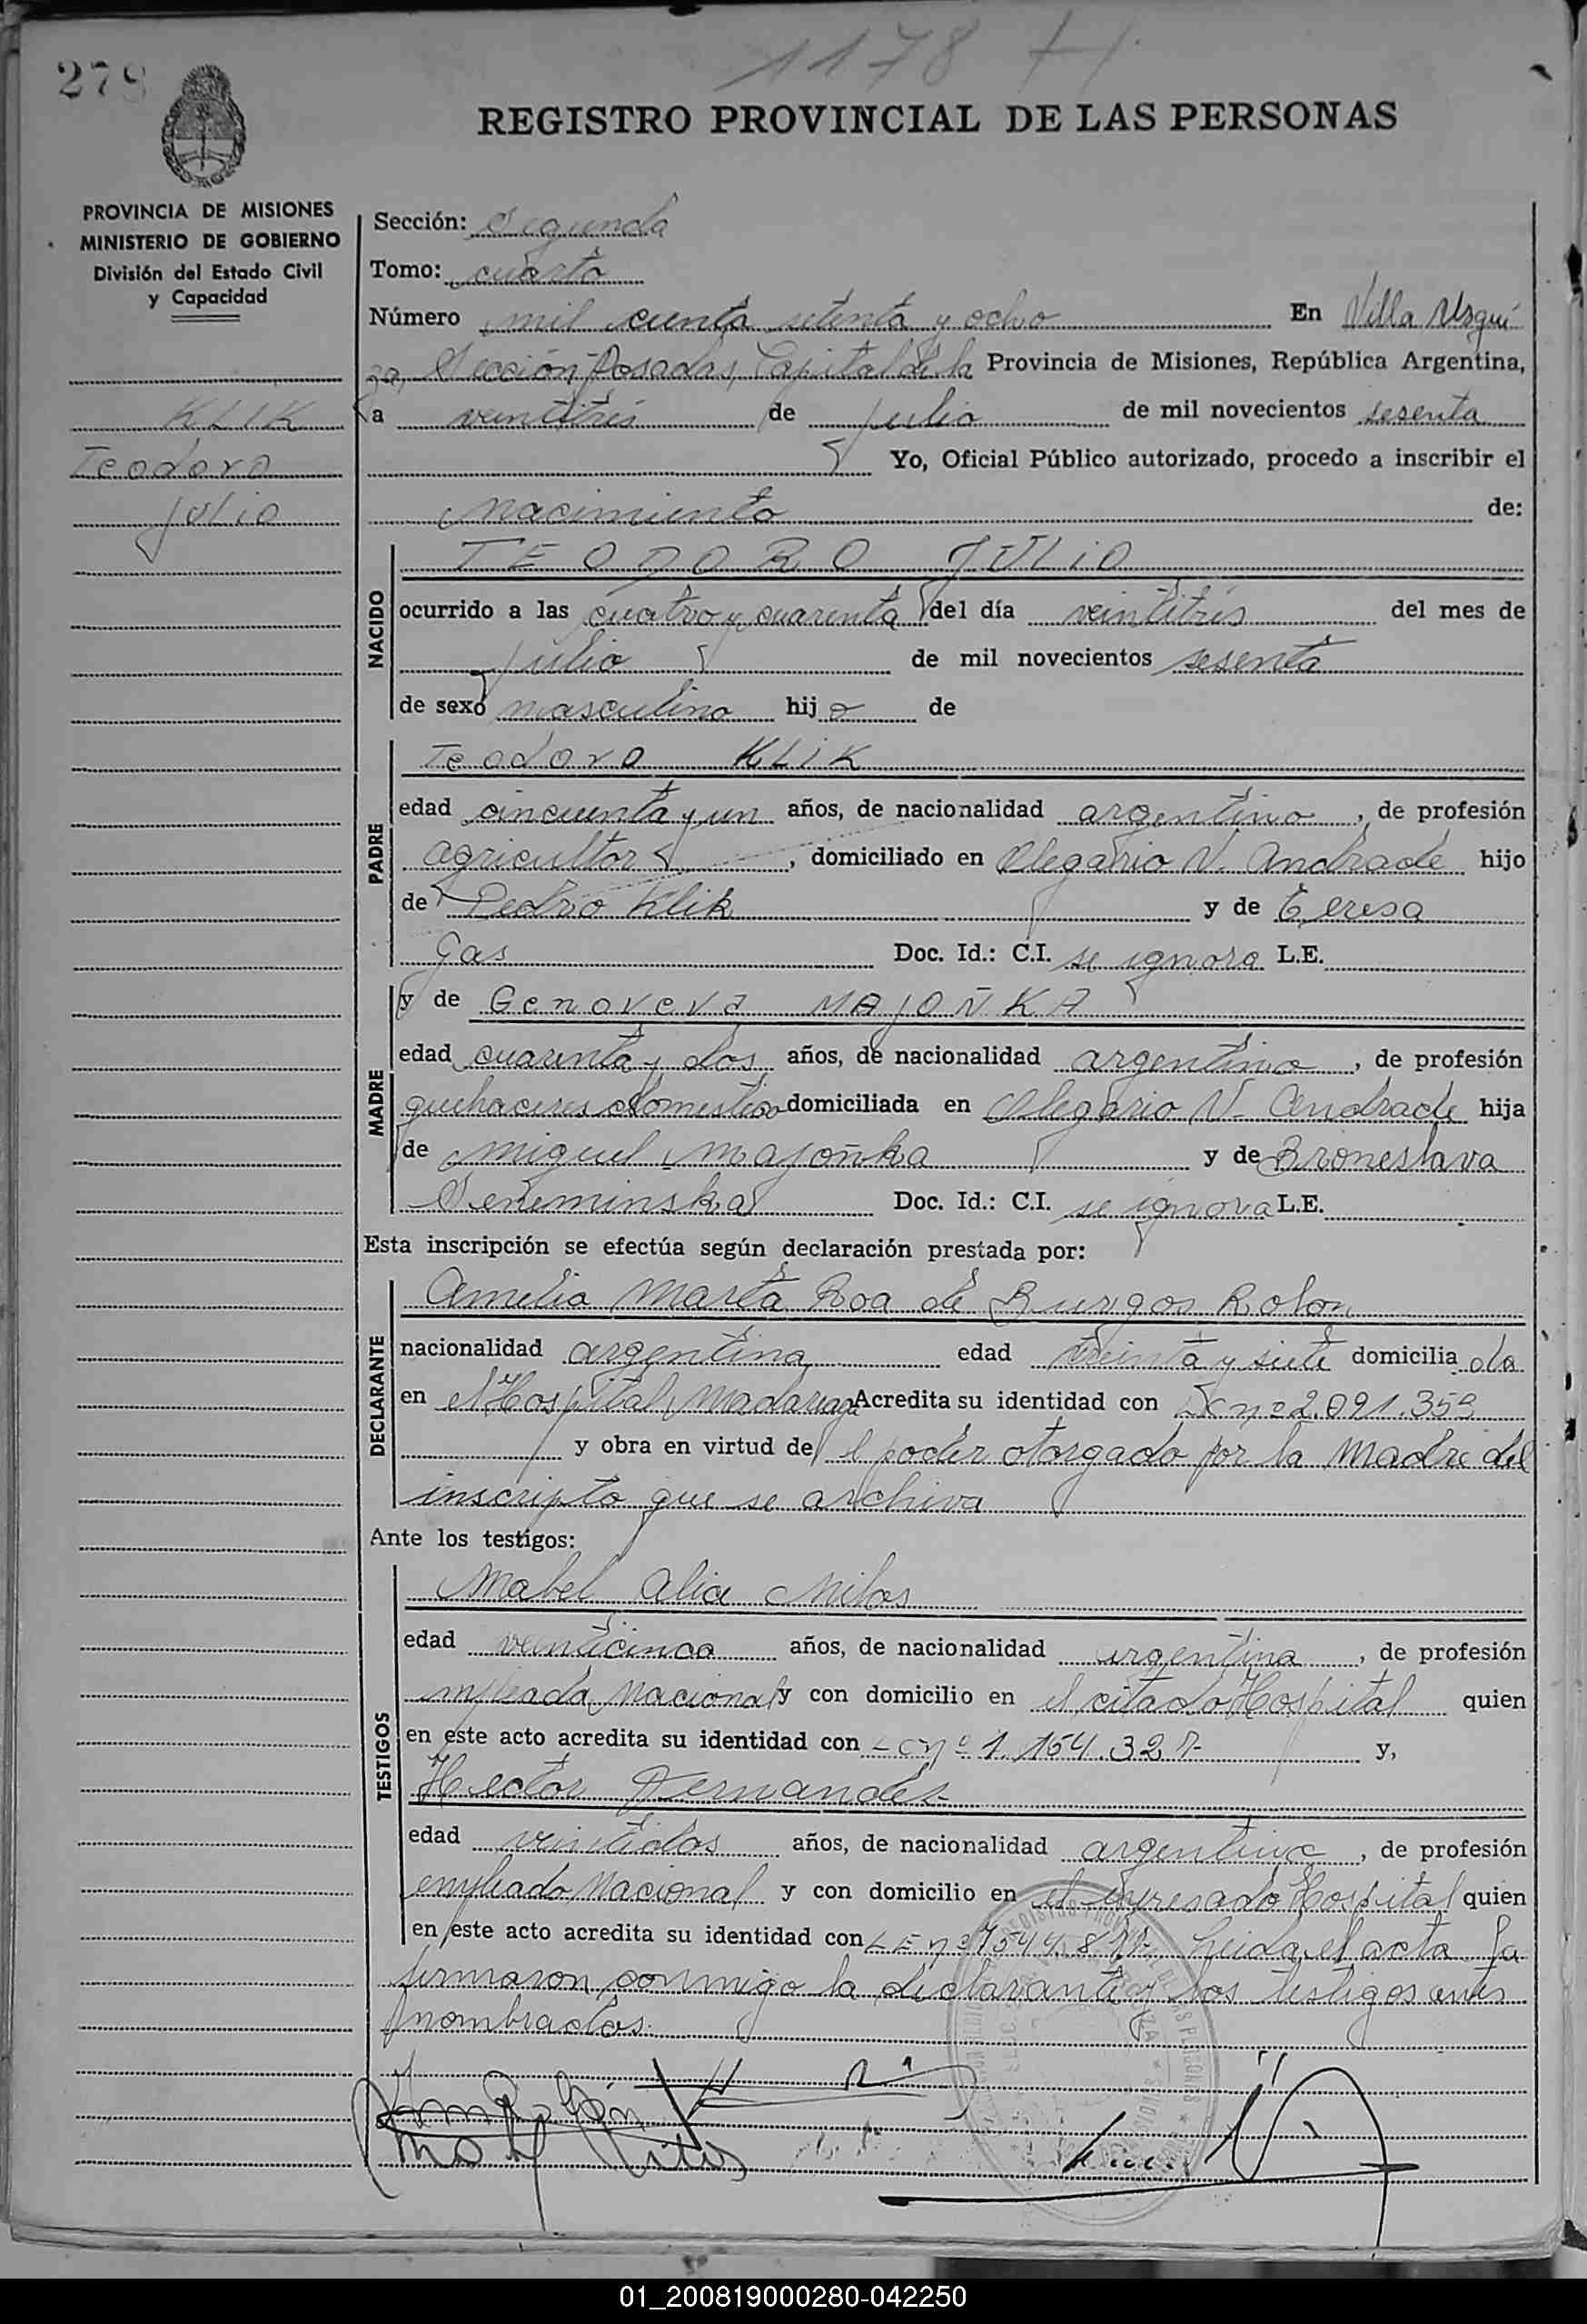 1178 H
279
REGISTRO PROVINCIAL DE LAS PERSONAS
PROVINCIA DE MISIONES
MINISTERIO DE GOBIERNO
División del Estado Civil
y Capacidad
KLIK
Teodoro
Julio
Sección: Segunda
Tomo: cuarto
Número mil cienta setenta y ocho En Villa Urqui
za, Sección Posadas, Capital de la Provincia de Misiones, República Argentina,
a veintitrés de julio de mil novecientos sesenta
Yo, Oficial Público autorizado, procedo a inscribir el
Nacimiento de:
NACIDO
TEODORO JULIO
ocurrido a las cuatro y cuarenta del día veintitrés del mes de
julio de mil novecientos sesenta
de sexo masculino hijo de
PADRE
Teodoro KLIK
edad cincuenta y un años, de nacionalidad argentino, de profesión
agricultor, domiciliado en Olegario V. Andrade hijo
de Pedro Klik y de Teresa
Gas Doc. Id.: C.I. se ignora L.E.
MADRE
y de Genoveva MAJOÑKA
edad cuarenta y dos años, de nacionalidad argentina, de profesión
quehaceres domesticos domiciliada en Olegario V. Andrade hija
de Miguel Majoñka y de Broneslava
Señeminska Doc. Id.: C.I. se ignora L.E.
Esta inscripción se efectúa según declaración prestada por:
DECLARANTE
Amelia Marta Roa de Burgos Rolon
nacionalidad argentina edad treinta y siete domicilia da
en el Hospital Madariaga Acredita su identidad con LC nº 2.091.359
y obra en virtud de el poder otorgado por la Madre del
inscripto que se archiva
Ante los testigos:
TESTIGOS
Mabel Alice Milos
edad veinticinco años, de nacionalidad argentina, de profesión
empleada Nacional y con domicilio en el citado Hospital quien
en este acto acredita su identidad con LC nº 1.154.327- y,
Hector Fernandes
edad veintidos años, de nacionalidad argentino, de profesión
empleado Nacional y con domicilio en el expresado Hospital quien
en este acto acredita su identidad con LE nº Leida el acta la
firmaron conmigo la declarante y los testigos antes
nombrados.
01_200819000280-042250